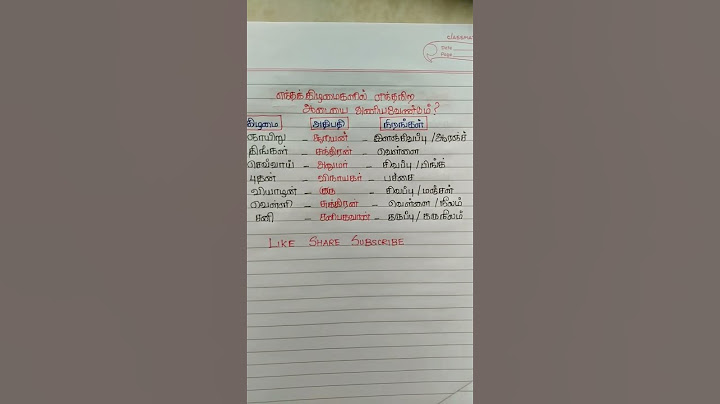 classmate
Date
Page
எந்தக்கிழமைகளில் எந்தநிற
ஆடையை அணியவேண்டும்?
கிழமை அதிபதி நிறங்கள்
ஞாயிறு - சூரியன் - இளஞ்சிவப்பு / ஆரஞ்ச்
திங்கள் - சந்திரன் - வெள்ளை
செவ்வாய் - அனுமர் - சிவப்பு / பிங்க்
புதன் - விநாயகர் - பச்சை
வியாழன் - குரு - சிவப்பு / மஞ்சள்
வெள்ளி - சுக்திரன் - வெள்ளை / நீலம்
சனி - சனிபகவான் - கருப்பு / கருநீலம்
LIKE SHARE SUBSCRIBE